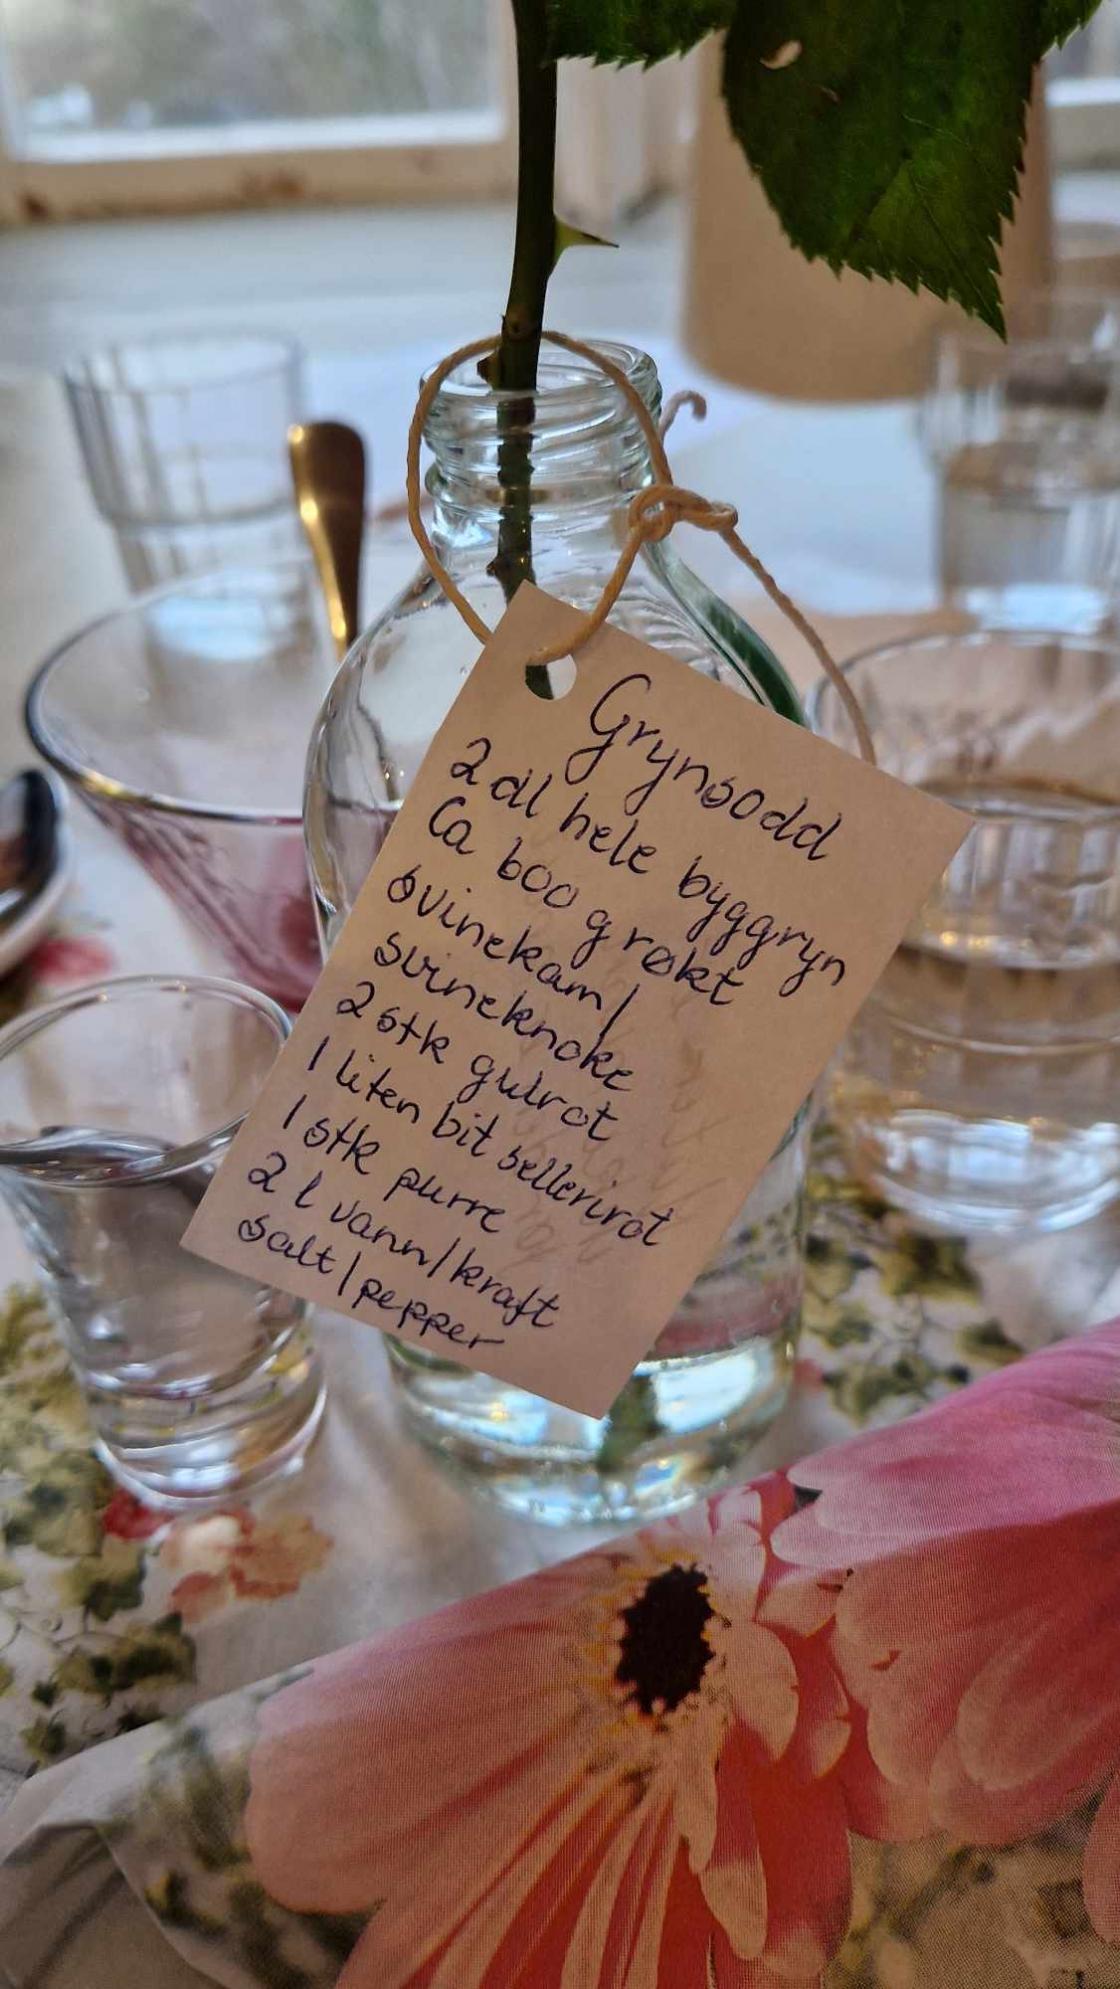 Grynsodd
2 dl hele byggryn
Ca 600 g røkt
svinekam/
svineknoke
2 stk gulrot
1 liten bit sellerirot
1 stk purre
2 l vann/kraft
salt/pepper